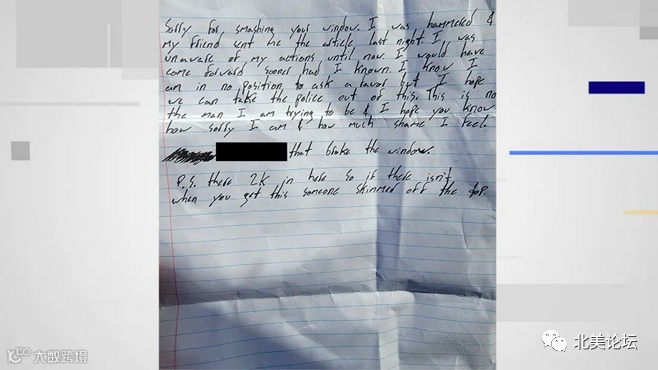 Sorry for smashing your window. I was hammered &
my friend sent me the article last night. I was
unaware of my actions until now. I would have
come forward sooner had I known. I know I
am in no position to ask a favor but I hope
we can take the police out of this. This is no
the man I am trying to be & I hope you know
how sorry I am & how much shame I feel.
that broke the window.
P.S. there 2K in here so if there isn't
when you get this someone skimmed off the top.
大数跨境
北美论坛